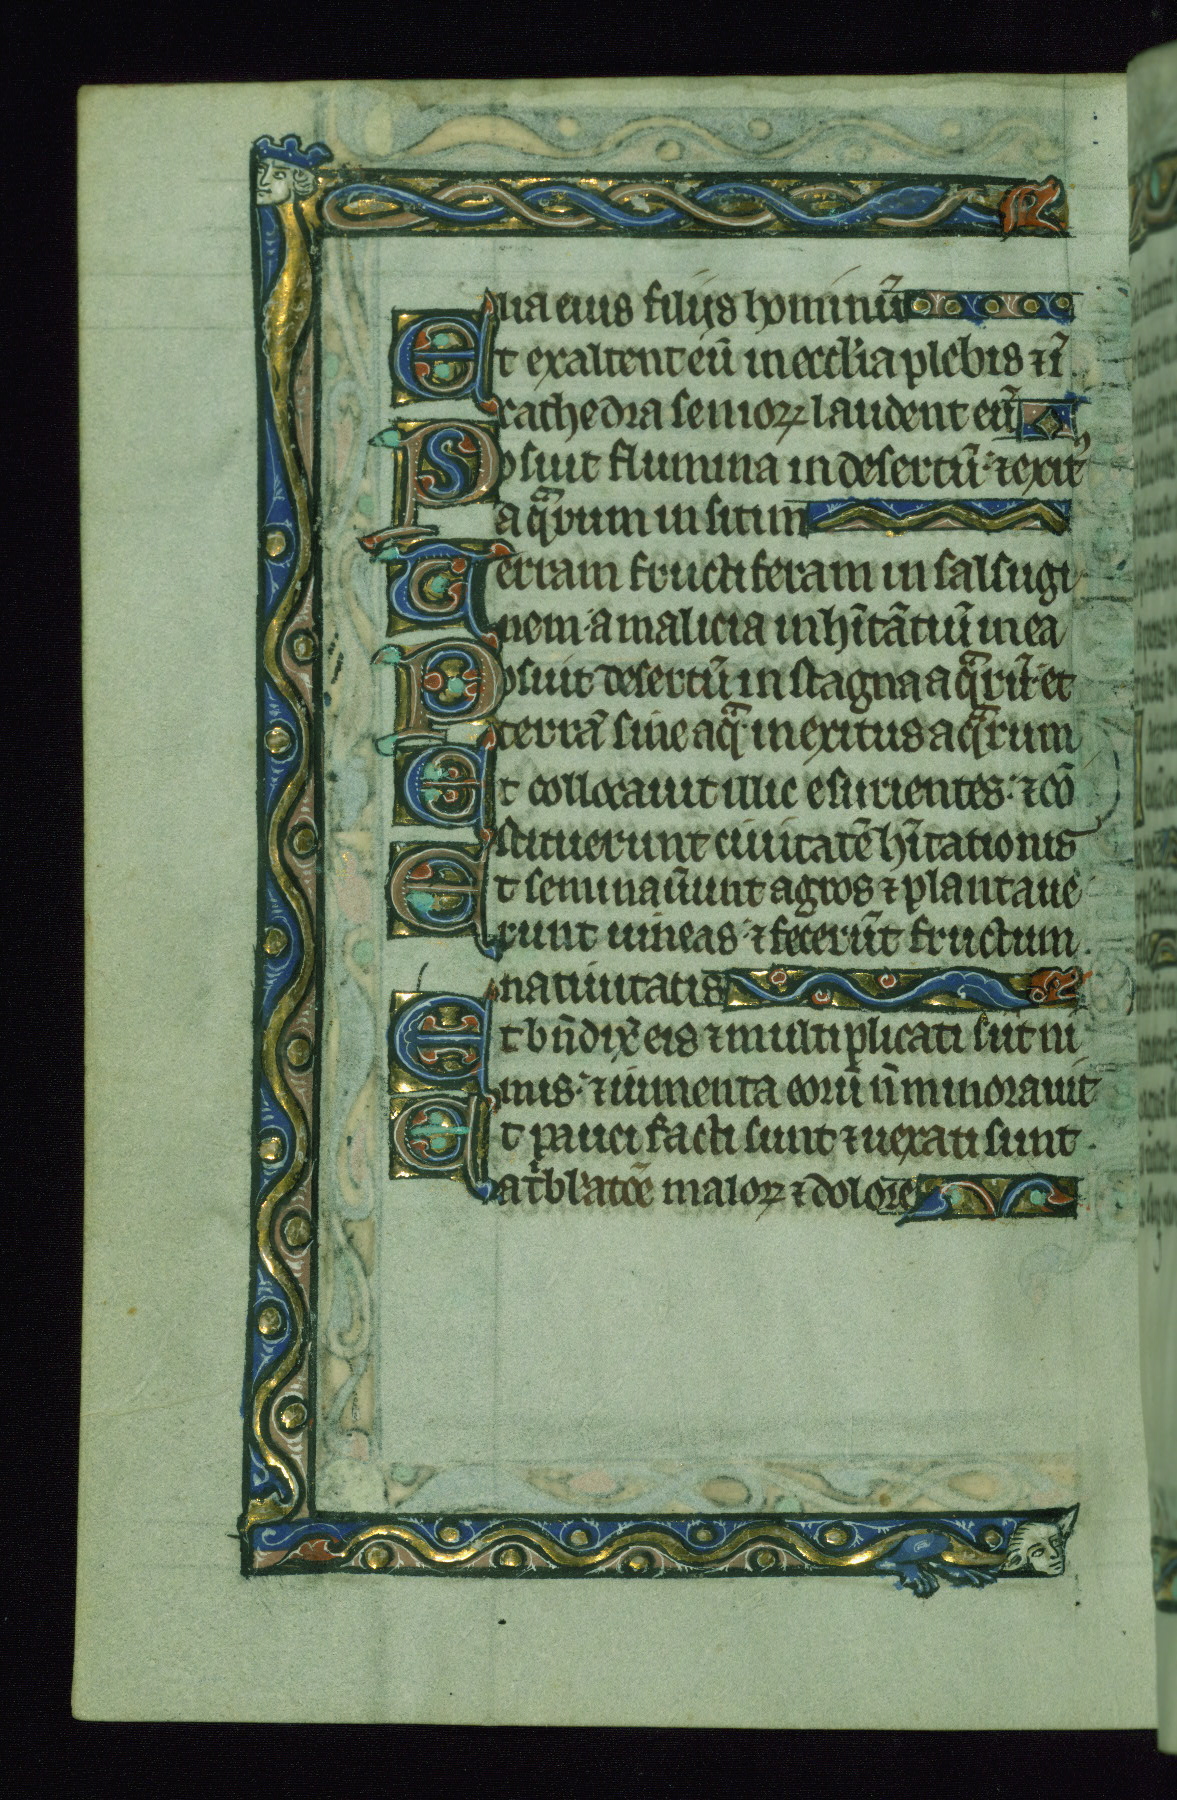 lia eius filiis hominū
Et exaltent eū in eccl'ia plebis ⁊ ī
cathedra senioꝝ laudent eū
Posuit flumina in desertū ⁊ exit'
aqͣrum in sitim
Terram fructiferam in salsugi
nem a malicia inhītātiū in ea
Posuit desertū in stagna aqͣrū et
terrā sine aqͣ in exitus aqͣrum
Et collocauit illic esurientes ⁊ cō
stituerunt ciuitatē hītationis
Et seminauerunt agros ⁊ plantaue
runt uineas ⁊ fecerūt fructum
natiuitatis
Et bn̄dix̄ eis ⁊ multiplicati sūt ni
mis ⁊ iumenta eorū n̄ minorauit
Et pauci facti sunt ⁊ uexati sunt
a t'bl'atōe maloꝝ ⁊ dolore